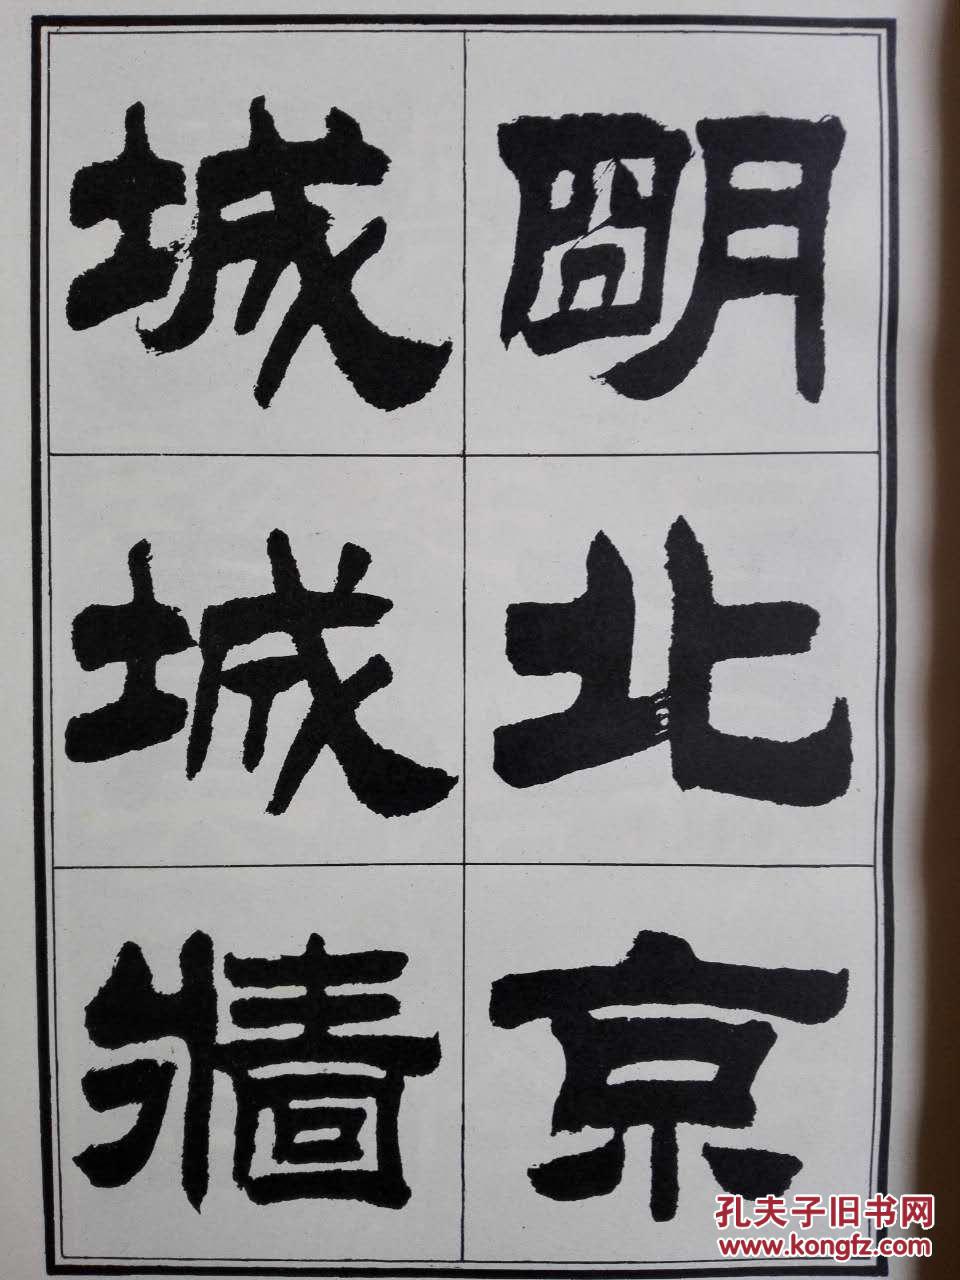 朙北京
城城牆
孔夫子旧书网
www.kongfz.com